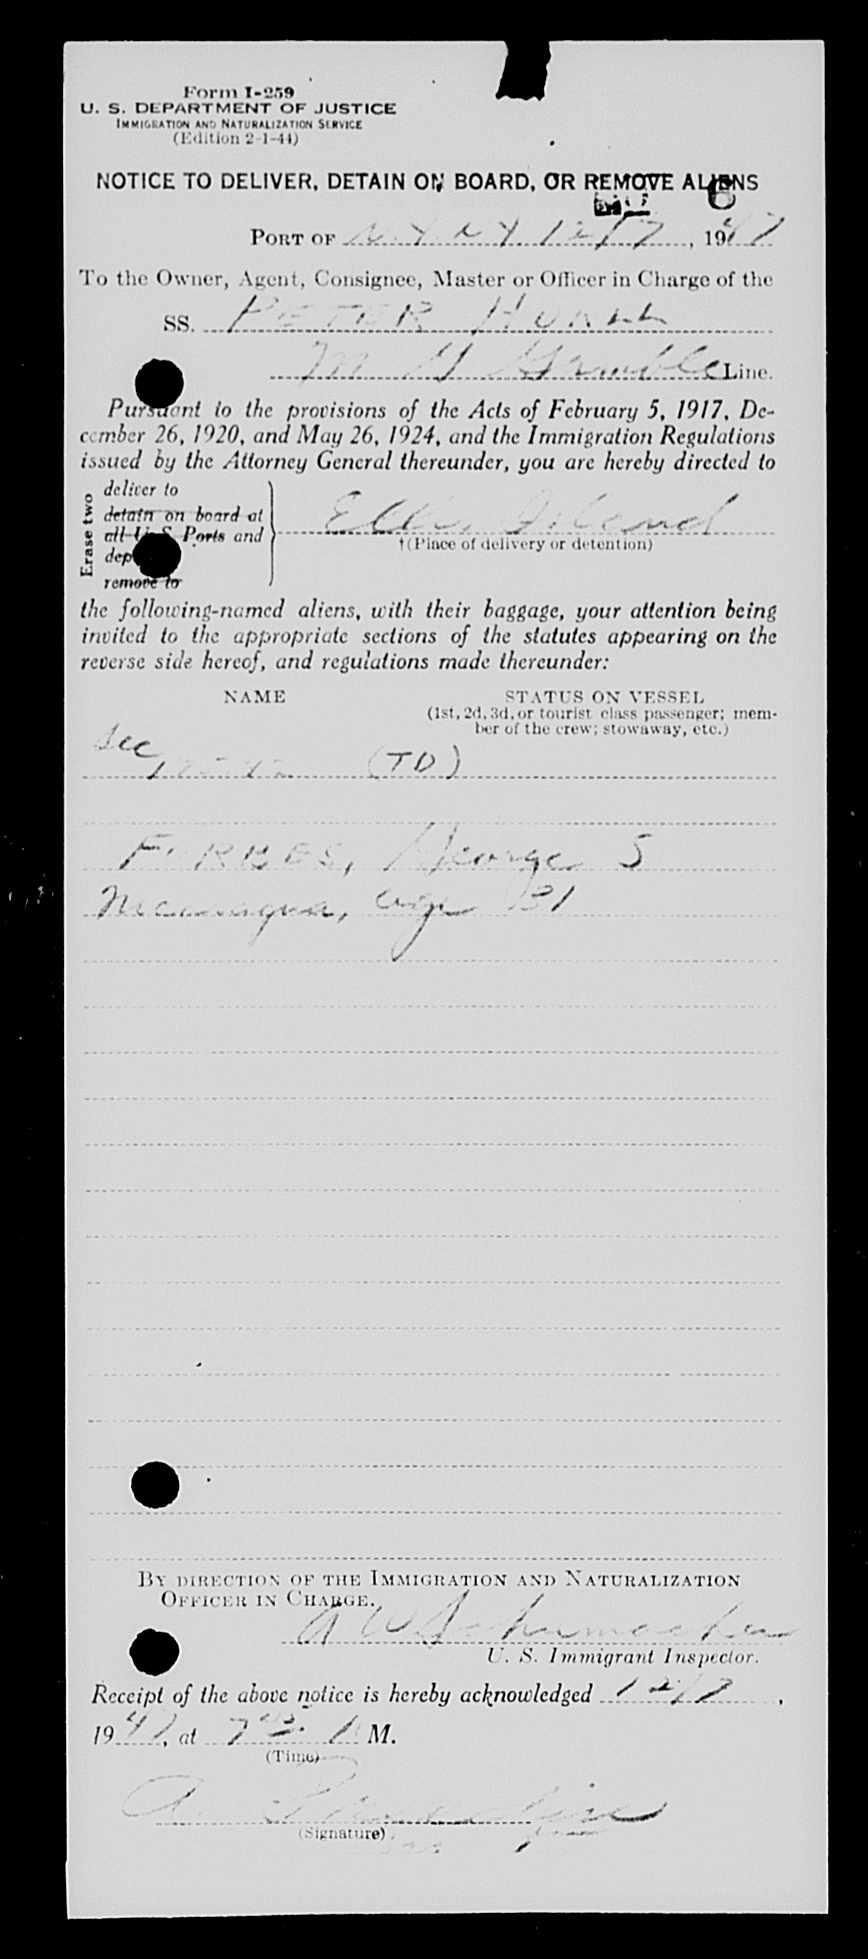 Form I-259
U. S. DEPARTMENT OF JUSTICE
IMMIGRATION AND NATURALIZATION SERVICE
(Edition 2-1-44)
NOTICE TO DELIVER, DETAIN ON BOARD, OR REMOVE ALIENS
6
PORT OF N Y N Y 12/7, 1947
To the Owner, Agent, Consignee, Master or Officer in Charge of the
SS. PETER
Line.
Pursuant to the provisions of the Acts of February 5, 1917, De-
cember 26, 1920, and May 26, 1924, and the Immigration Regulations
issued by the Attorney General thereunder, you are hereby directed to
Erase two
deliver to
detain on board at
all U. S. Ports and
dep
remove to
Ellis Island
†(Place of delivery or detention)
the following-named aliens, with their baggage, your attention being
invited to the appropriate sections of the statutes appearing on the
reverse side hereof, and regulations made thereunder:
NAME STATUS ON VESSEL
(1st, 2d, 3d, or tourist class passenger; mem-
ber of the crew; stowaway, etc.)
Sec (TD)
FORBES, George S
Nicaragua, age 31
BY DIRECTION OF THE IMMIGRATION AND NATURALIZATION
OFFICER IN CHARGE.
A W Schumacher
U. S. Immigrant Inspector.
Receipt of the above notice is hereby acknowledged 12/7,
1947, at M.
(Time)
(Signature)